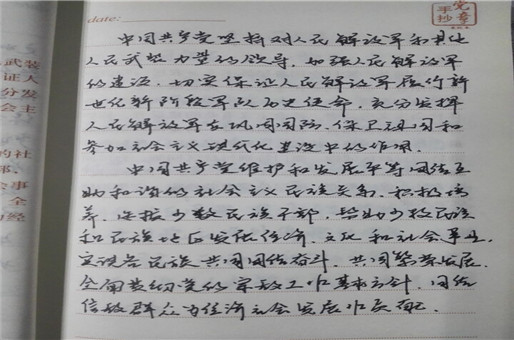 date:
党章
手抄
中国共产党坚持对人民解放军和其他
人民武装力量的领导，加强人民解放军
的建设，切实保证人民解放军履行新
世纪新阶段军队历史使命，充分发挥
人民解放军在巩固国防、保卫祖国和
参加社会主义现代化建设中的作用。
中国共产党维护和发展平等团结互
助和谐的社会主义民族关系，积极培
养、选拔少数民族干部，帮助少数民族
和民族地区发展经济、文化和社会事业，
实现各民族共同团结奋斗、共同繁荣发展。
全面贯彻党的宗教工作基本方针，团结
信教群众为经济社会发展作贡献。
武装
证人
分发
会主
的社
部，
会事
全
为经